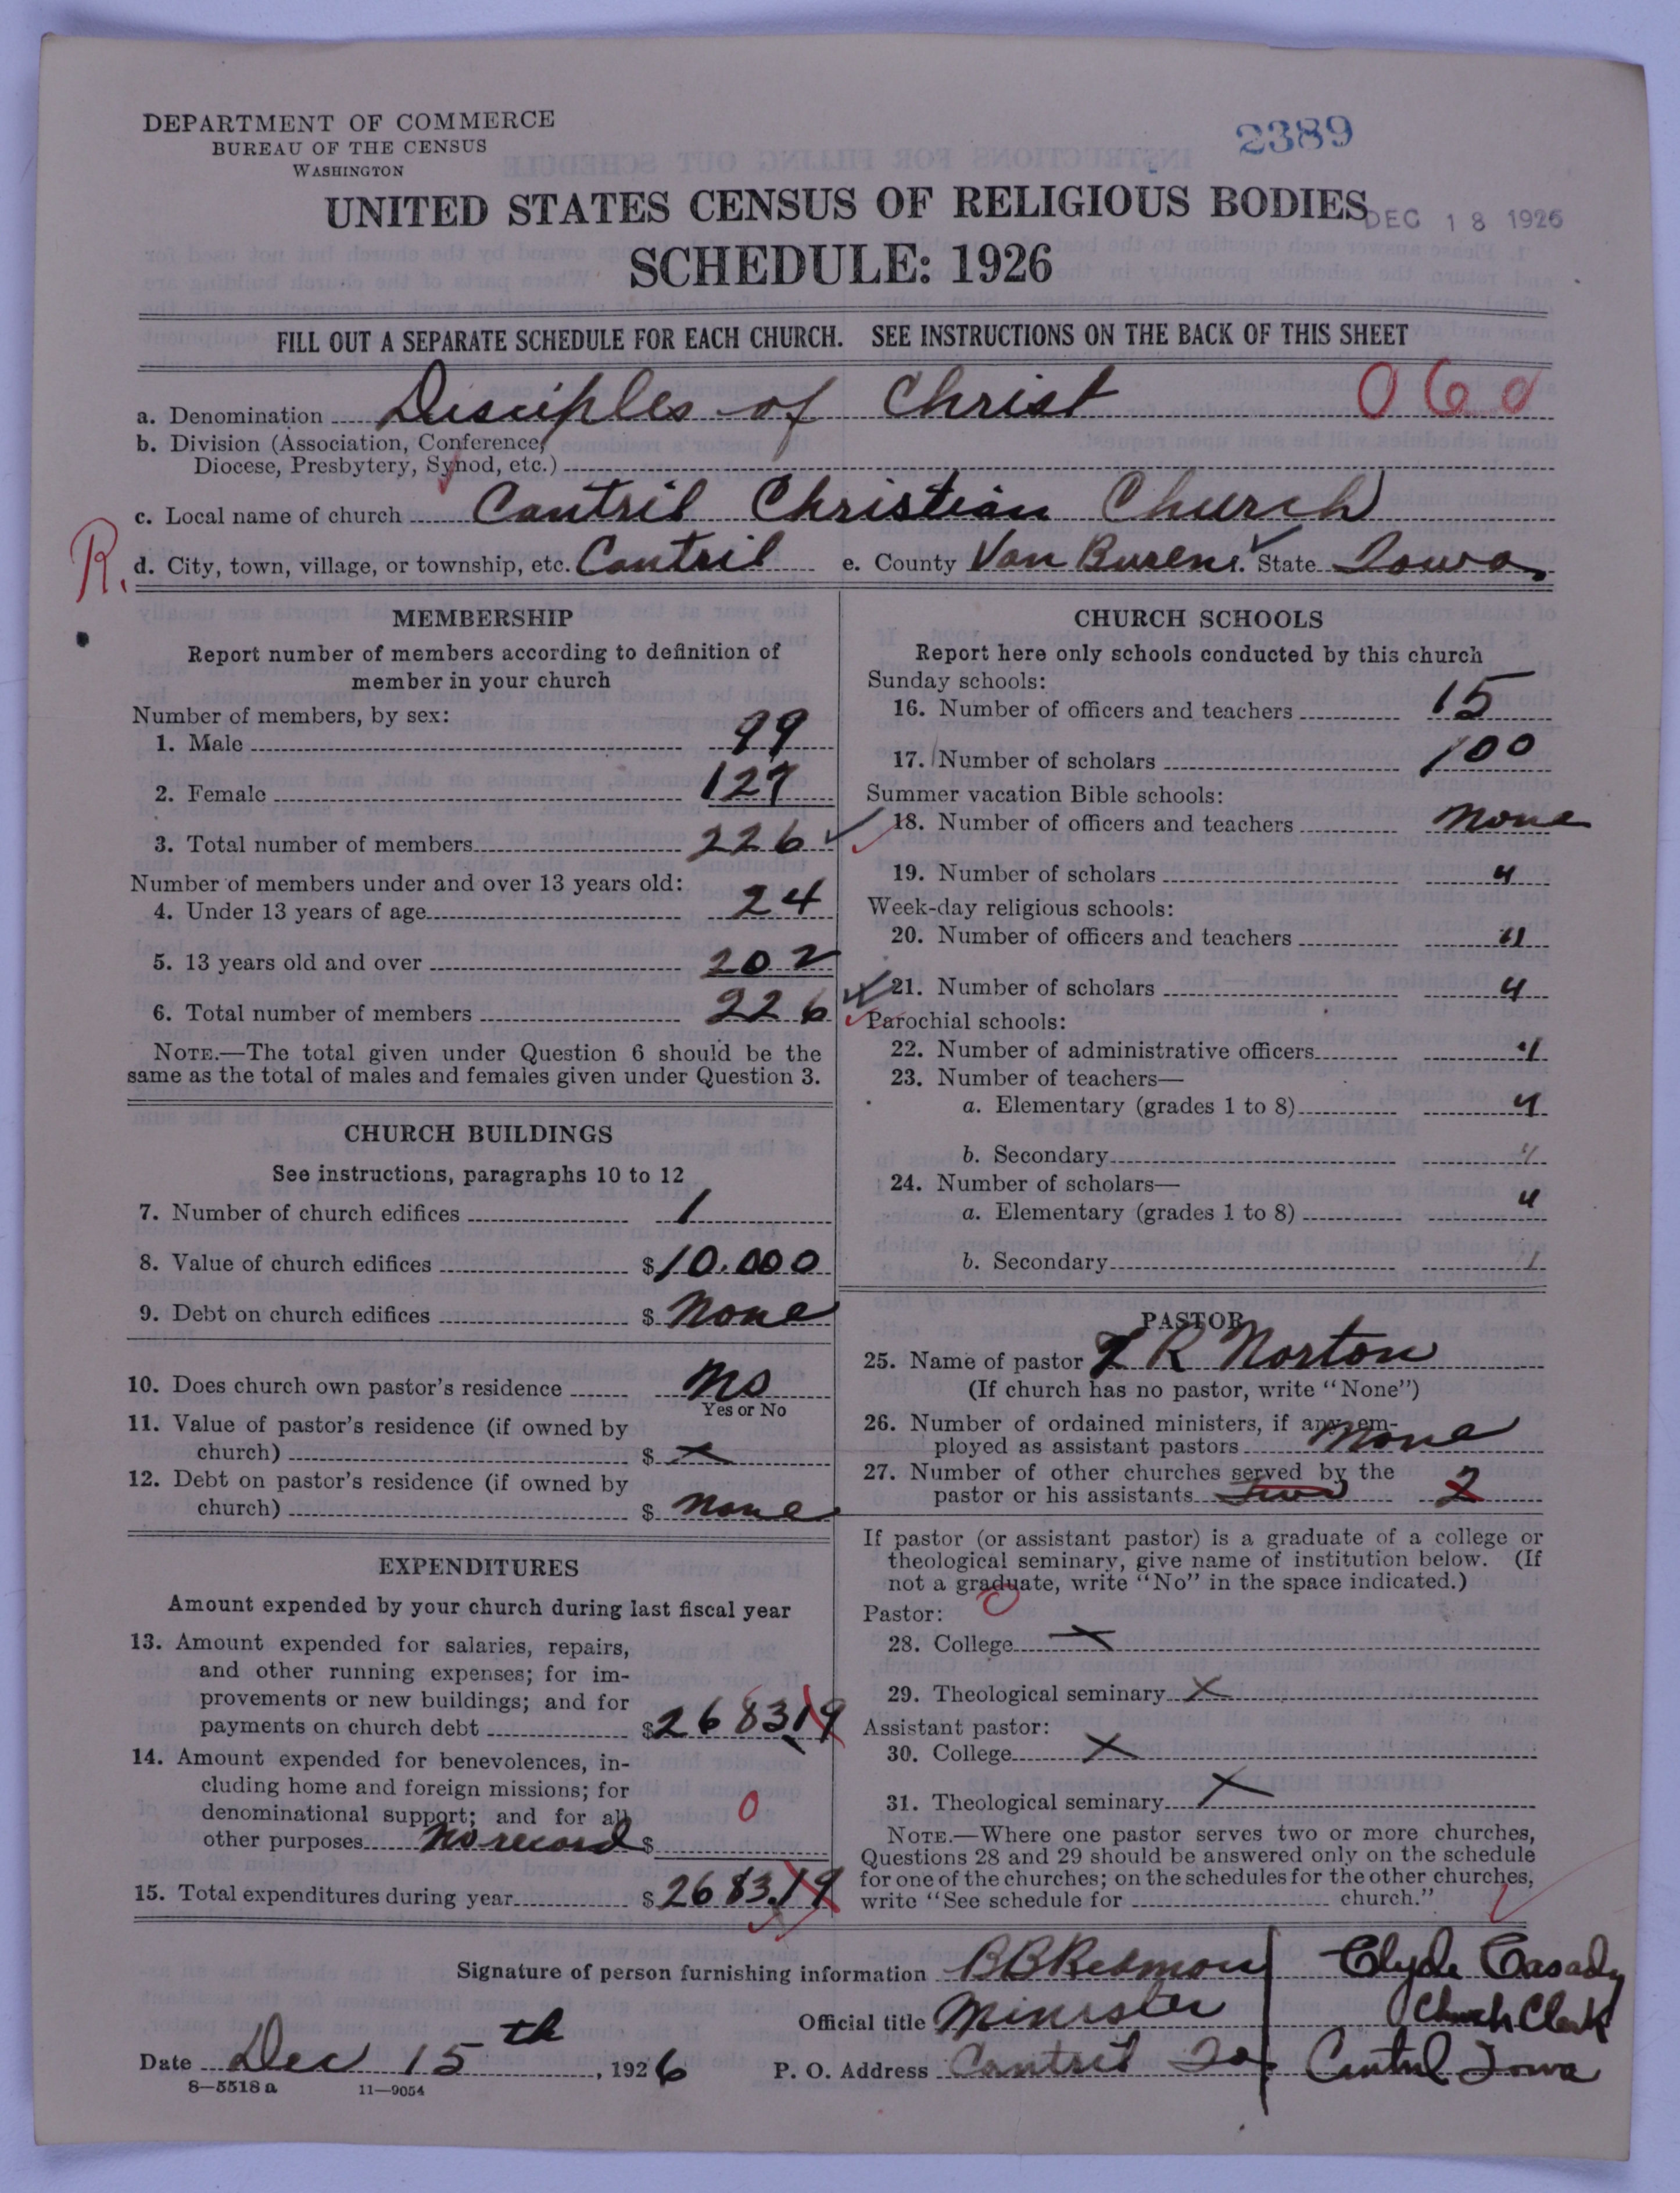 DEPARTMENT OF COMMERCE
BUREAU OF THE CENSUS
WASHINGTON
2389
UNITED STATES CENSUS OF RELIGIOUS BODIES
DEC 18 1926
SCHEDULE: 1926
FILL OUT A SEPARATE SCHEDULE FOR EACH CHURCH. SEE INSTRUCTIONS ON THE BACK OF THIS SHEET
a. Denomination Disciples of Christ 060
b. Division (Association, Conference,
Diocese, Presbytery, Synod, etc.)
c. Local name of church Cantril Christian Church
R. d. City, town, village, or township, etc. Cantril e. County Van Buren f. State Iowa
MEMBERSHIP
Report number of members according to definition of
member in your church
Number of members, by sex:
1. Male 99
2. Female 127
3. Total number of members 226
Number of members under and over 13 years old:
4. Under 13 years of age 24
5. 13 years old and over 202
6. Total number of members 226
NOTE.—The total given under Question 6 should be the
same as the total of males and females given under Question 3.
CHURCH BUILDINGS
See instructions, paragraphs 10 to 12
7. Number of church edifices 1
8. Value of church edifices $10.000
9. Debt on church edifices $ None
10. Does church own pastor's residence No
Yes or No
11. Value of pastor's residence (if owned by
church) $ x
12. Debt on pastor's residence (if owned by
church) $ None
EXPENDITURES
Amount expended by your church during last fiscal year
13. Amount expended for salaries, repairs,
and other running expenses; for im-
provements or new buildings; and for
payments on church debt $2683.19
14. Amount expended for benevolences, in-
cluding home and foreign missions; for
denominational support; and for all 0
other purposes No record $
15. Total expenditures during year $2683.19
CHURCH SCHOOLS
Report here only schools conducted by this church
Sunday schools:
16. Number of officers and teachers 15
17. Number of scholars 100
Summer vacation Bible schools:
18. Number of officers and teachers None
19. Number of scholars "
Week-day religious schools:
20. Number of officers and teachers "
21. Number of scholars "
Parochial schools:
22. Number of administrative officers "
23. Number of teachers—
a. Elementary (grades 1 to 8) "
b. Secondary "
24. Number of scholars—
a. Elementary (grades 1 to 8) "
b. Secondary "
PASTOR
25. Name of pastor R Norton
(If church has no pastor, write "None")
26. Number of ordained ministers, if any, em-
ployed as assistant pastors None
27. Number of other churches served by the
pastor or his assistants Two 2
If pastor (or assistant pastor) is a graduate of a college or
theological seminary, give name of institution below. (If
not a graduate, write "No" in the space indicated.)
0
Pastor:
28. College x
29. Theological seminary x
Assistant pastor:
30. College x
31. Theological seminary x
NOTE.—Where one pastor serves two or more churches,
Questions 28 and 29 should be answered only on the schedule
for one of the churches; on the schedules for the other churches,
write "See schedule for church."
Signature of person furnishing information BB Redmon Clyde Casady
Official title Minister Church Clerk
Date Dec 15th, 1926 P. O. Address Cantril Ia. Cantril Iowa
8—5518a 11—9054